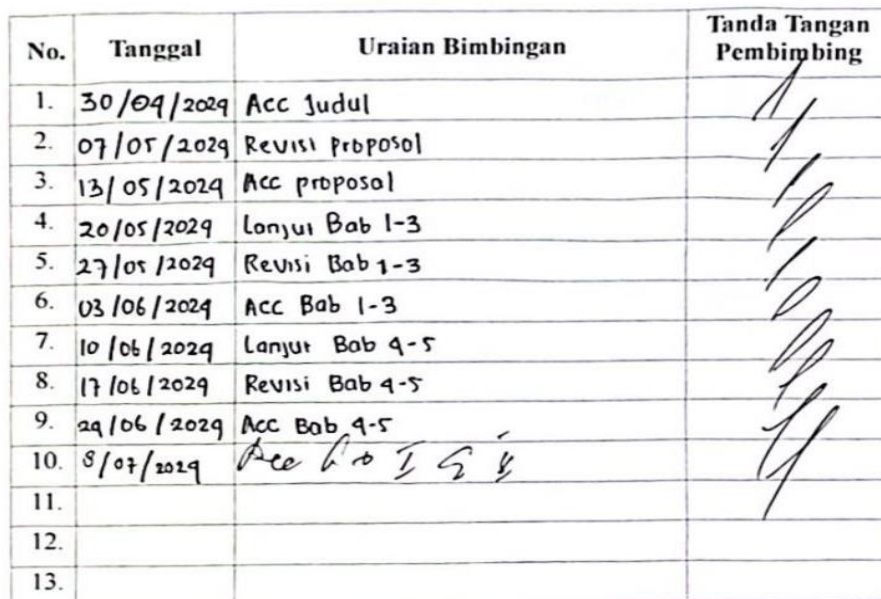 No. Tanggal Uraian Bimbingan Tanda Tangan Pembimbing
1. 30/04/2024 Acc Judul
2. 07/05/2024 Revisi proposal
3. 13/05/2024 Acc proposal
4. 20/05/2024 Lanjut Bab 1-3
5. 27/05/2024 Revisi Bab 1-3
6. 03/06/2024 Acc Bab 1-3
7. 10/06/2024 Lanjut Bab 4-5
8. 17/06/2024 Revisi Bab 4-5
9. 24/06/2024 Acc Bab 4-5
10. 8/07/2024 Acc
11.
12.
13.